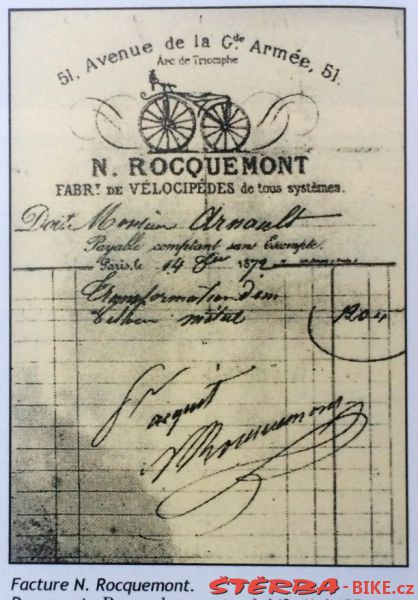 51, Avenue de la Gde Armée, 51.
Arc de Triomphe
N. ROCQUEMONT
FABRT. DE VÉLOCIPÈDES de tous systèmes.
Doit Monsieur Arnault
Payable comptant sans Escompte.
Paris, le 14 8bre 1872
Transformation d'un
métal
Pr acquit
NRocquemont
Facture N. Rocquemont.
ŠTĚRBA-BIKE.cz